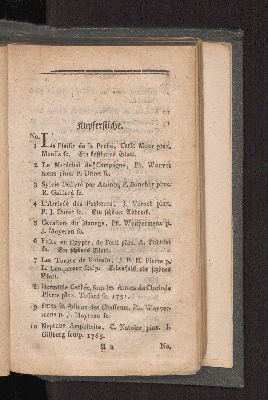 Kupferstiche.
No.
1 La Plaisir de la Perse, Carle Moor pinx.
sc. Ein kostbares Blatt.
2 Le Maréchal de Campagne, Ph. Wouver
mens pinx. P. Duret sc.
3 Sylvie Délivré par Aminte, F. Boucher pinx.
R. Gaillard sc.
4 L'Arrivée des Pecheurs, J. Vernet pinx.
P. J. Duret sc. Ein schönes
5 Cavaliers du Manege, Ph. Wouvermens p.
J. Moyreau sc.
6 en Egypte, de Ferii plux. A.
sc. Ein schönes Blatt.
7 Les Forges de Vulcain, J. B. M. Pierre p.
L. Lempereur sculp. Ebenfalls ein schönes
Blatt.
8 Herminie Cachée sous les Armes de Clorinde
Pierre pinx. sc. 1751.
9 Fetes et Adieux des Chasseurs, Ph. Wouver-
mens p. J. Moyreau sc.
10 Neptune Amphitrite, C. Natoire pinx. J.
Gillberg sculp. 1765.
A 2
No.